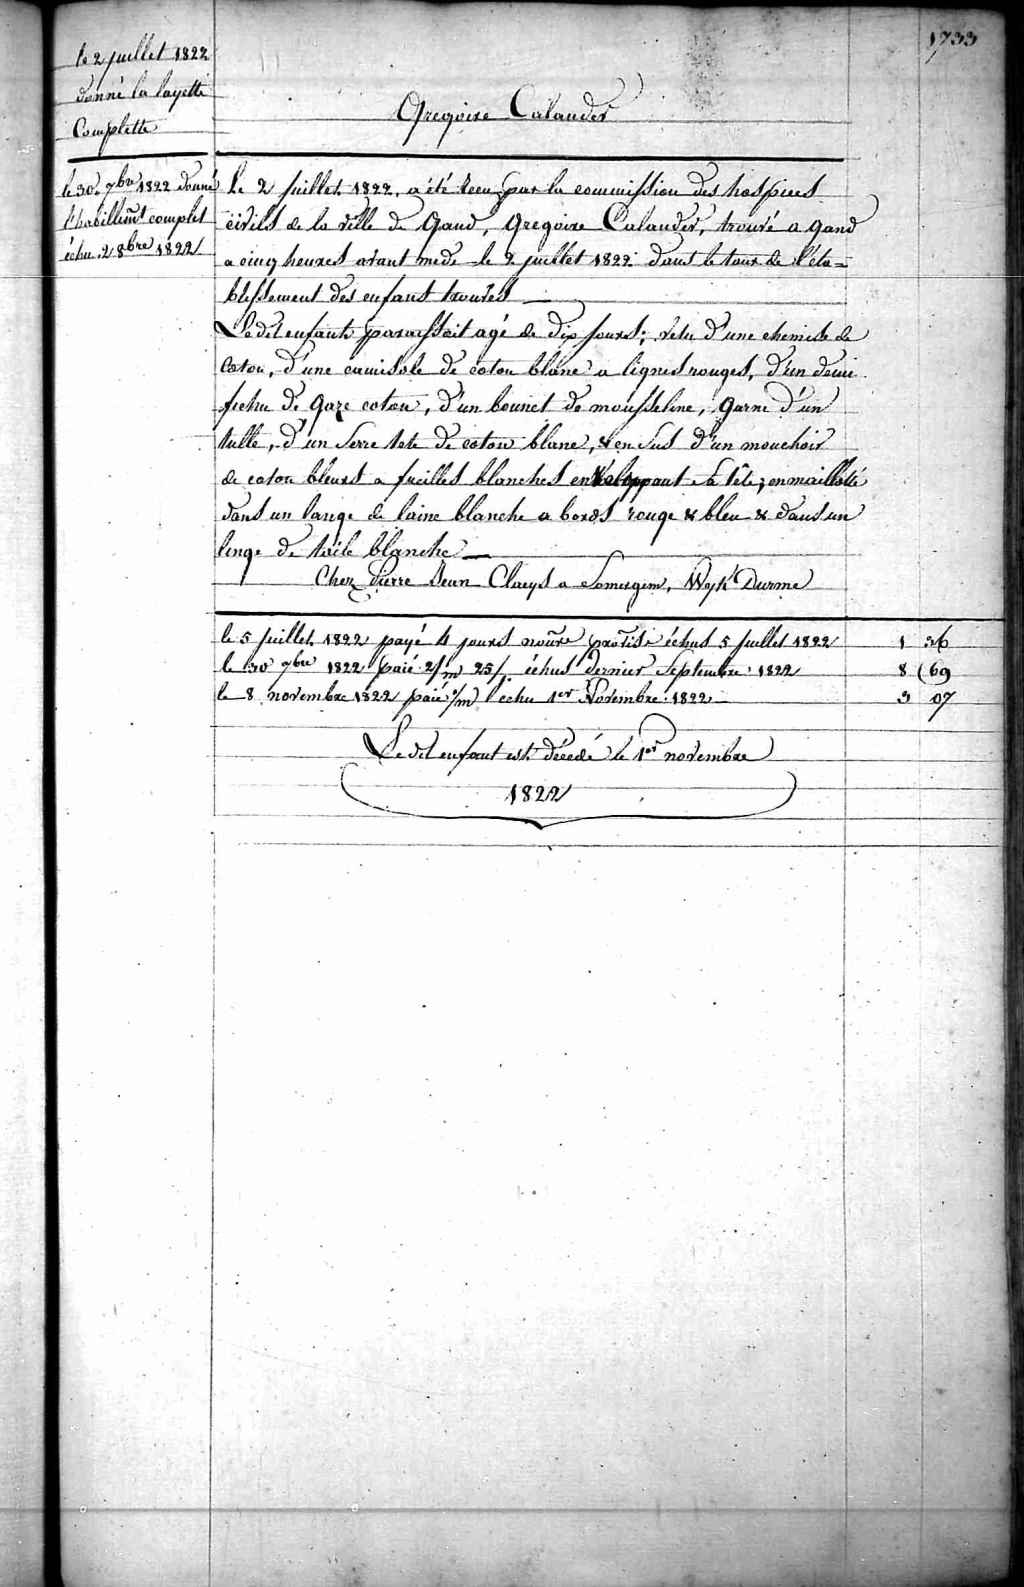 1733
le 2 juillet 1822
donné la layette
Complette
Gregoire Calander
le 30. 7bre 1822 donné
l'habillemt complet
échu 2 8bre 1822
Le 2 Juillet 1822, a été recu par la commission des hospices
civils de la ville de Gand, Gregoire Calander, trouvé a gand
a cinq heures avant midi le 2 juillet 1822 dans le tour de l'éta=
blissement des enfans trouvés —
Le dit enfant paraissait agé de dix jours; vetu d'une chemise de
coton, d'une camisole de coton blanc a lignes rouges, d'un demi
fichu de gaze coton, d'un bonnet de mousseline, garni d'un
tulle, d'un serre tete de coton blanc, & en sus d'un mouchoir
de coton bleus a fueilles blanches enveloppant sa tête; enmaillotté
dans un lange de laine blanche a bords rouge & bleu & dans un
linge de toile blanche —
Chez Pierre Jean Claeys a Somergem, Wyk Durme
le 5 Juillet 1822 payé 4 jours nourre échus 5 Juillet 1822 1 36
le 30 7bre 1822 paié 2/m 25/. échus dernier Septembre 1822 8 69
le 8 novembre 1822 paié /m échu 1er Novembre 1822 3 07
Le dit enfant est décedé le 1er novembre
1822